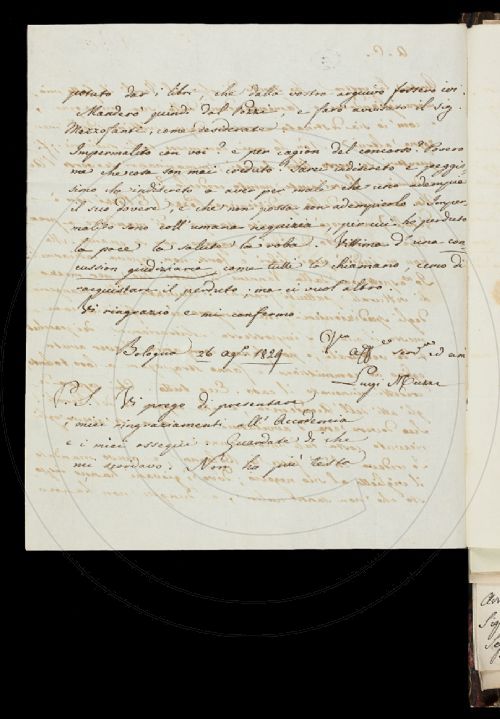 potuto dar i libri, che dalla vostra acquirò fossero ivi.
Manderò quindi dal Pozzi, e farò avvisato il Sig.
Mezzofanti, come desiderate
Impermalito con voi? e per cagion del concorso? Povero
ma che cosa son mai creduto? Sarei indiscreto e peggis-
simo che indiscreto a aver per male che uno adempia
il suo dovere, e che non possa non adempierlo. Imper-
malito sono coll'umana nequizia, per cui ho perduto
la pace la salute la roba. Vittima d'una con
cussion giudiziaria come tutti la chiamano, cerco di
racquistare il perduto, ma ci vuol altro.
Vi ringrazio e mi confermo
Bologna 26 ag. 1829
Aff. serv. ed am
Luigi
P. S. Vi prego di presentare
i miei ringraziamenti all'Accademia
e i miei ossequi. Guardate di che
mi scordavo. Non ho più testa